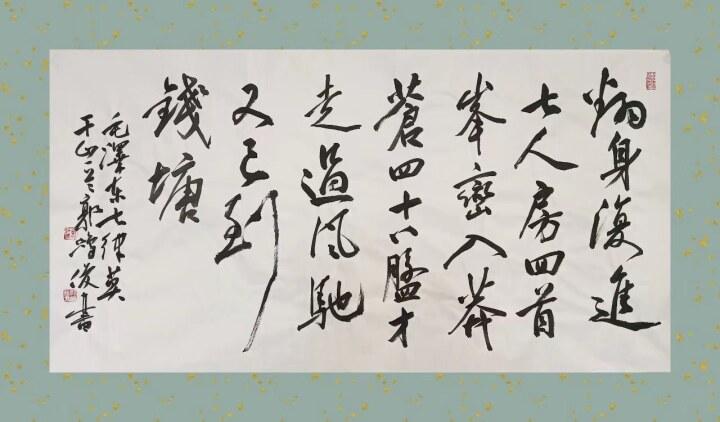 翻身復進
七人房回首
峯巒入莽
蒼四十八盤才
走過風馳
又已到
錢塘
毛澤東七律莫
干山一首郭俊書